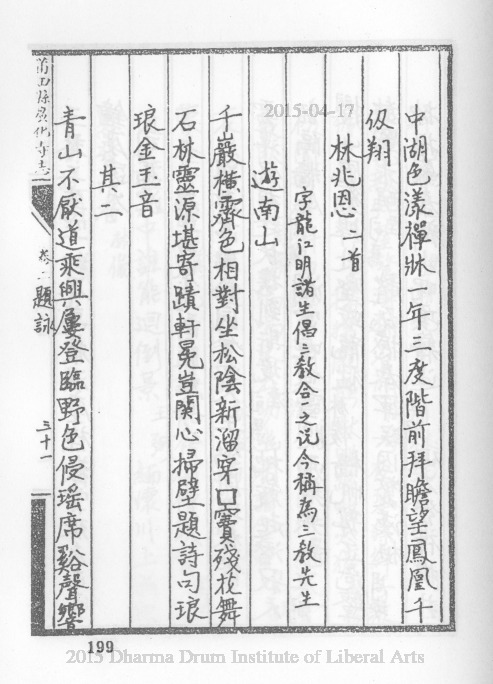 中湖色漾禪牀一年三度階前拜瞻望鳳凰千
仭翔
林兆恩二首
字龍江明諸生倡三教合一之说今稱為三教先生
遊南山
千巖橫霽色相對坐松陰新溜穿口竇殘花舞
石林靈源堪寄蹟軒冕豈関心掃壁題詩句琅
琅金玉音
其二
青山不厭道乘興屢登臨野色侵瑤席谿聲響
莆田縣廣化寺志
卷二題詠
三十一
199
2015-04-17
2015 Dharma Drum Institute of Liberal Arts